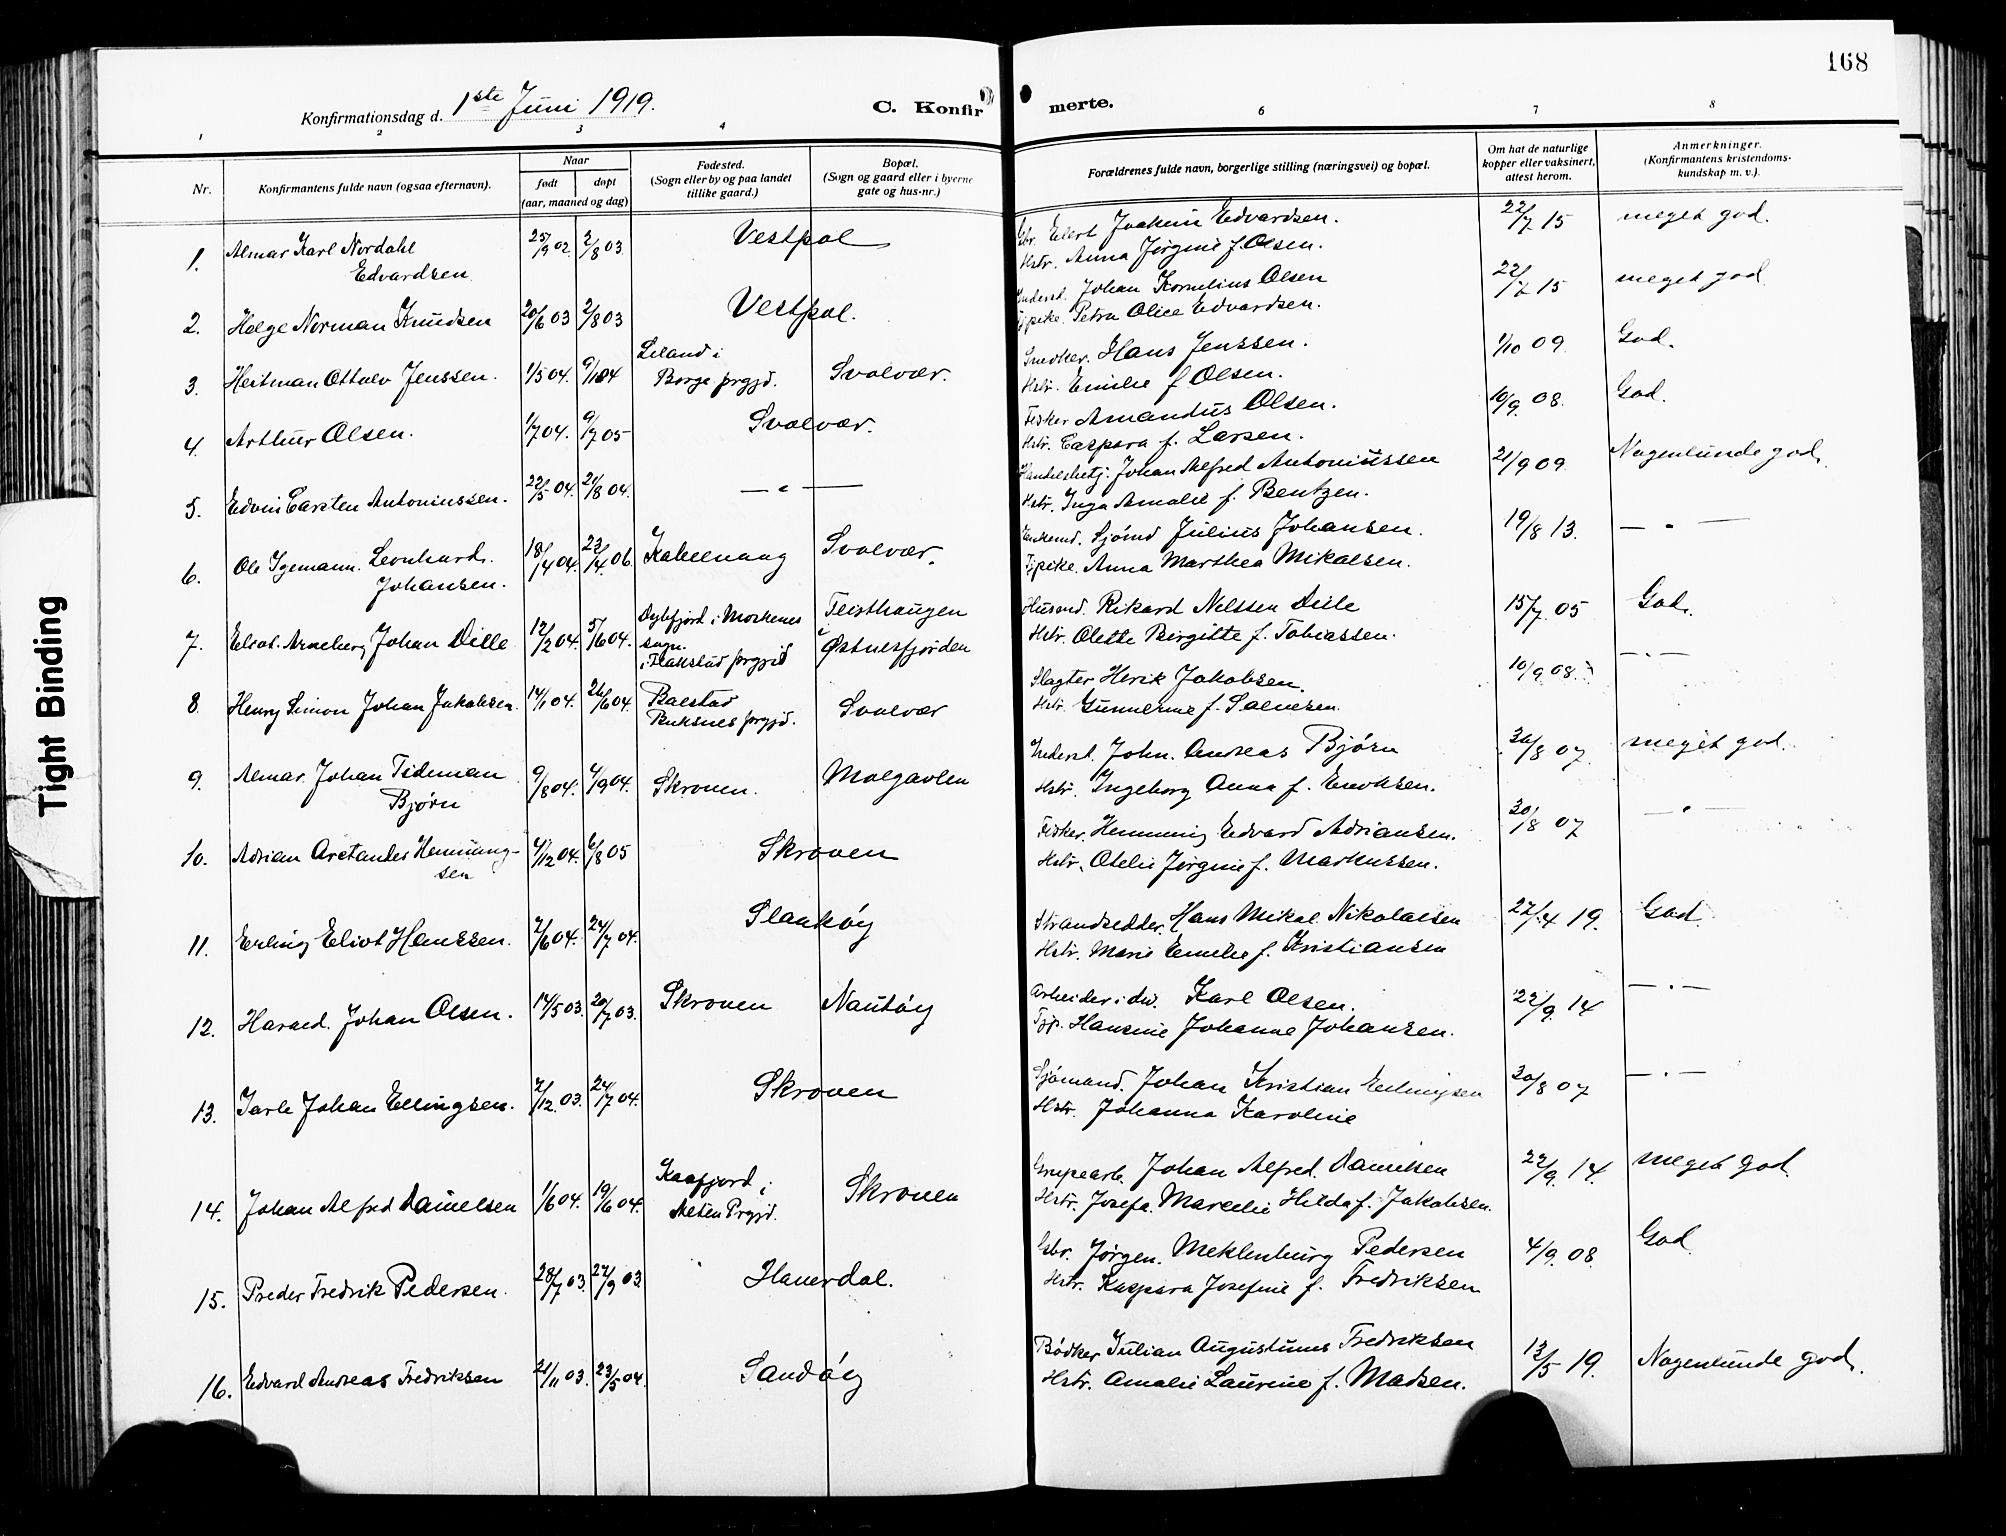 168
Konfirmationsdag d. 1ste Juni 1919.
C. Konfirmerte.
1 2 3 4 6 7 8
Nr.
Konfirmantens fulde navn (ogsaa efternavn).
Naar
født
døpt
(aar, maaned og dag)
Fødested.
(Sogn eller by og paa landet
tillike gaard.)
Bopæl.
(Sogn og gaard eller i byerne
gate og hus-nr.)
Forældrenes fulde navn, borgerlige stilling (næringsvei) og bopæl.
Om hat de naturlige
kopper eller vaksinert,
attest herom.
Anmerkninger.
(Konfirmantens kristendoms-
kundskap m. v.).
1. Almar Karl Nordahl
Edvardsen
25/9 02. 2/8 03 Vestpol
Gbr. Elert Joakim Edvardsen.
Hstr. Anna Jørgine f. Olsen.
22/7 15 meget god.
2. Helge Norman Knudsen 20/6 03 2/8 03 Vestpol.
Inderst. Johan Kornelius Olsen
Tjpike. Petra Olice Edvardsen.
22/7 15 meget god.
3. Heitman Ottolv Jenssen. 1/5 04. 9/10 04
Leland i
Borge prgjd.
Svolvær.
Snedker. Hans Jenssen.
Hstr. Emilie f. Olsen.
1/10 09. God.
4. Arthur Olsen. 1/7 04. 9/7 05 Svolvær.
Fisker Amandus Olsen.
Hstr. Caspara f. Larsen.
10/9. 08. God.
5. Edvin Carsten Antoniussen. 22/5 04. 21/8 04. — " —
Handelsbetj. Johan Alfred Antoniussen
Hstr. Inga Amalie f. Bentzen.
21/9 09. Nogenlunde god.
6. Ole Igemann. Leonhard.
Johansen.
18/4 04. 23/4. 06. Kabelvaag Svolvær.
Enkemd. Sjømd Julius Johansen.
Tjpike. Anna Marthea Mikalsen.
19/8 13. — " —
7. Johan Dille 12/2 04. 5/6 04.
i Moskenes
sogn.
i Flakstad prgjd
Feisthaugen
i
Østnesfjorden
Husmd. Rikard Nelssen Dille
Hstr. Olette Birgitte f. Tobiassen.
15/7. 05 God.
8. Henry Simon Johan Jakobsen. 14/1 04. 26/6 04.
Balstad
Buksnes prgjd.
Svolvær
Slagter Herik Jakobsen.
Hstr. f.
10/9. 08. — " —
9. Almar. Johan Tideman
Bjørn
9/8 04. 4/9 04. Skroven. Molgavlen
Inderst. John. Andreas Bjørn
Hstr. Ingeborg Anna f. Eriksen.
30/8 07 meget god.
10. Adrian Arctander Hemming-
sen
4/12 04. 6/8 05 Skroven
Fisker. Hemming Edvard Adriansen.
Hstr. Otelie Jørgine f. Markussen.
30/8 07 — " —
11. Erling Eliot Hanssen. 2/6 04. 24/7 04. Slankøy
Strandsidder. Hans Mikal Nikolaisen
Hstr. Marie Emelie f. Kristiansen
22/4 19. God.
12. Harald. Johan Olsen. 14/5 03. 20/7 03. Skroven Nautøy
Arbeider i dw. Karl Olsen.
Tjp. Hansine Johanne Johansen.
22/9. 14 — " —
13. Jarle Johan Ellingsen. 2/12. 03. 24/7 04. Skroven
Sjømand. Johan Kristian Ellingsen
Hstr. Johanna Karoline
30/8 07 — " —
14. Johan Alfred Danielsen 1/6 04. 19/6 04.
Kaafjord i
Alten Prgjd.
Skroven
Grupearb. Johan Alfred. Danielsen
Hstr. Josefa. Marcelie Hilda f. Jakobsen.
22/9. 14 meget god
15. Peder Fredrik Pedersen. 28/7 03. 27/9 03. Haverdal.
Gbr. Jørgen. Meklenburg Pedersen
Hstr. Kaspara Josefine f. Fredriksen
4/9. 08. God.
16. Edvard Andreas Fredriksen 21/11 03. 23/5 04. Sandøy
Bødker Julian Augustinus Fredriksen
Hstr. Amalie Laurine f. Madsen.
13/5 19. Nogenlunde god.
Tight Binding